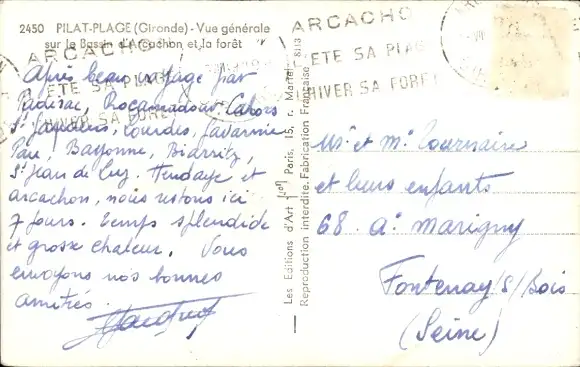 2450 PILAT-PLAGE (Gironde) - Vue générale
sur le Bassin d'Arcachon et la forêt
ARCACHO
ETE SA PLAG
HIVER SA FORET
ARCACHO
ETE SA PLAG
HIVER SA FORET
Après beau voyage par
Padirac, Rocamadour Cahors
Lourdes, Gavarnie
Pau, Bayonne, Biarritz,
St Jean de Luz. Hendaye et
arcachon, nous restons ici
7 jours. temps splendide
et grosse chaleur. Vous
envoyons nos bonnes
amitiés.
Les Editions d'Art Paris, 15, r. Martel
Reproduction interdite. Fabrication Française
Mr et Me Tournaire
et leurs enfants
68 Ae Marigny
Fontenay s/ Bois
(Seine)